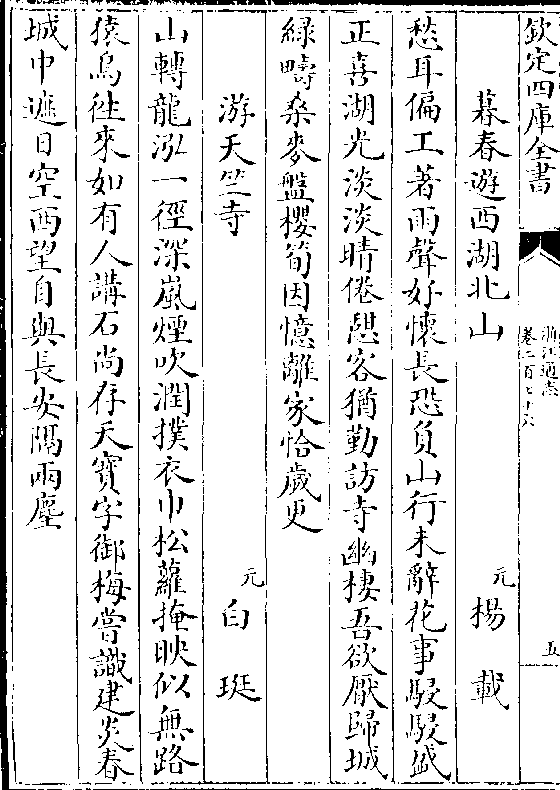 欽定四庫全書
浙江通志
卷二百七十六
五
暮春遊西湖北山
元楊載
愁耳偏工著雨聲好懷長恐負山行未辭花事駸駸盛
正喜湖光淡淡晴倦憇客猶勤訪寺幽棲吾欲厭歸城
緑疇桑麥盤櫻筍因憶離家恰歲更
游天竺寺
元白珽
山轉龍泓一徑深嵐煙吹潤撲衣巾松蘿掩映似無路
猿鳥徃來如有人講石尚存天寶字御梅嘗識建炎春
城中遮日空西望自與長安隔兩塵